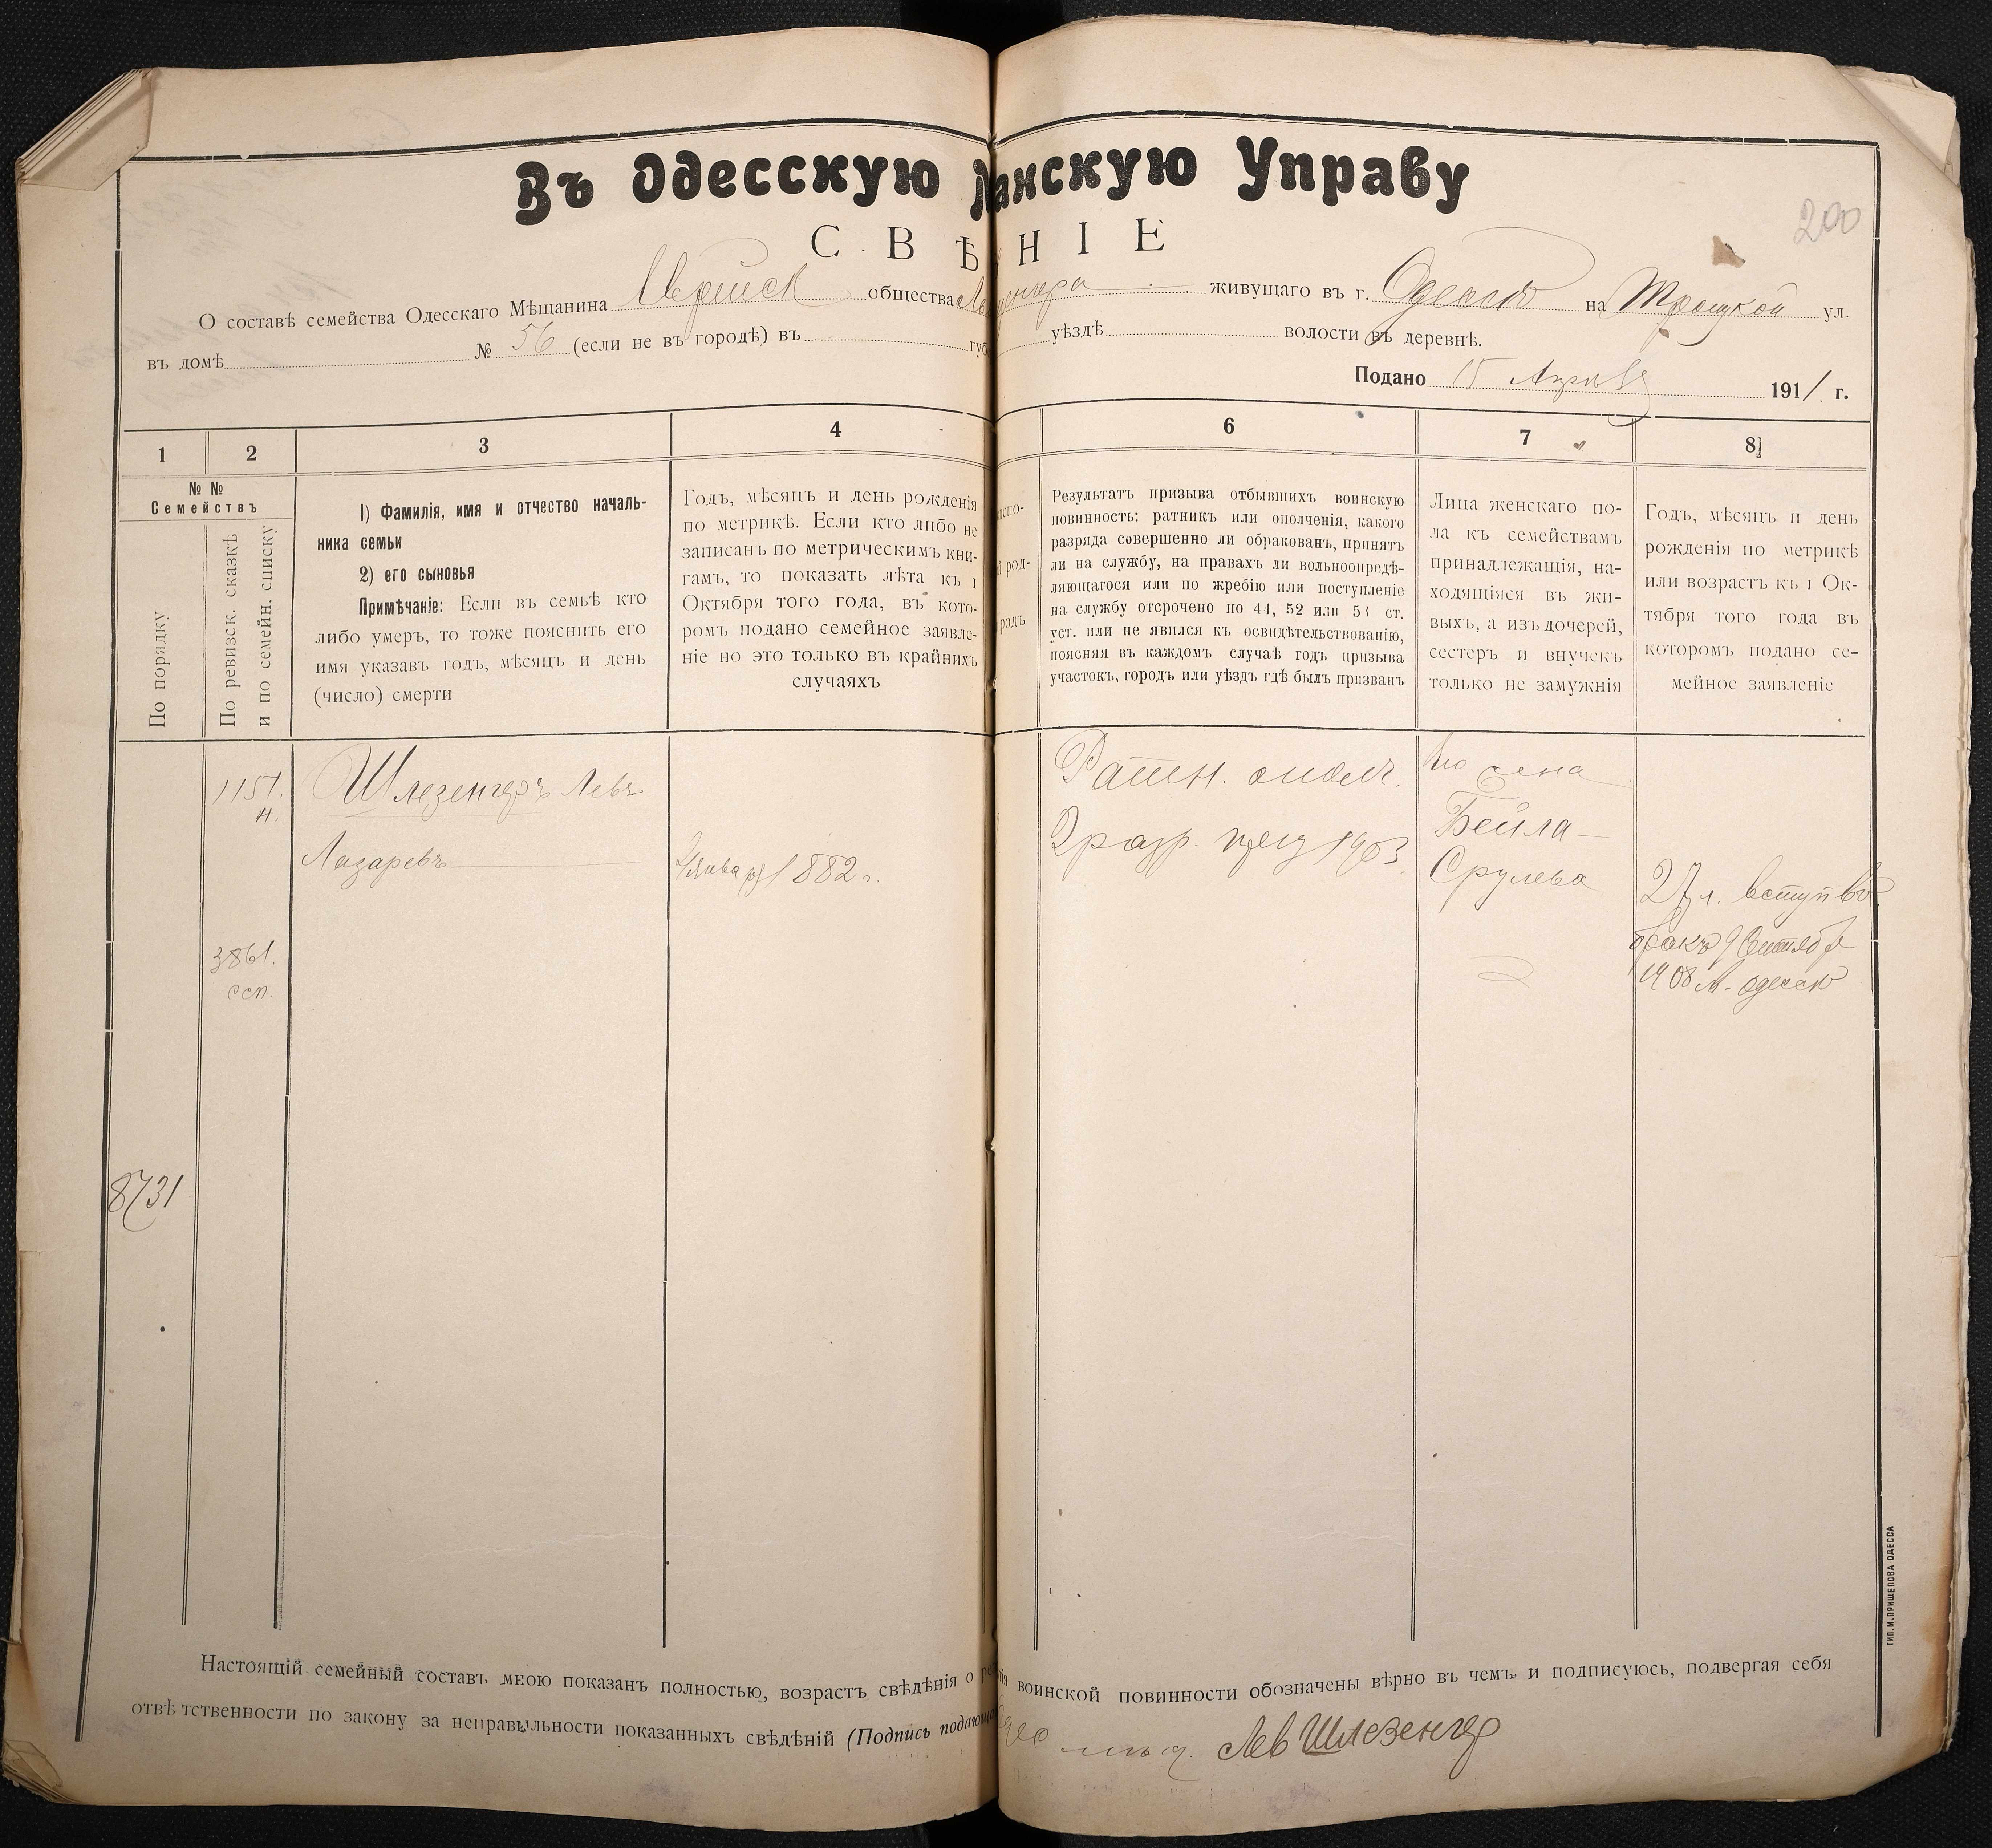 Въ Одесскую анскую Управу
200
СВѢ НІЕ
О составѣ семейства Одесскаго Мѣщанина Еврейск общества живущаго въ г. Одессѣ на Троицкой ул.
въ домѣ № 56 (если не въ городѣ) въ губ уѣздѣ волости въ деревнѣ.
Подано 15 Апрѣля 1911 г.
1 2 3 4 6 7 8
№ №
Семействъ
По порядку
По ревизск. сказкѣ
и по семейн. списку
1) Фамилія, имя и отчество началь-
ника семьи
2) его сыновья
Примѣчаніе: Если въ семьѣ кто
либо умеръ, то тоже пояснить его
имя указавъ годъ, мѣсяцъ и день
(число) смерти
Годъ, мѣсяцъ и день рожденія
по метрикѣ. Если кто либо не
записанъ по метрическимъ кни-
гамъ, то показать лѣта къ 1
Октября того года, въ кото-
ромъ подано семейное заявле-
ніе но это только въ крайнихъ
случаяхъ
испо-
род-
родъ
Результатъ призыва отбывшихъ воинскую
повинность: ратникъ или ополченія, какого
разряда совершенно ли обракованъ, принятъ
ли на службу, на правахъ ли вольноопредѣ-
ляющагося или по жребію или поступленіе
на службу отсрочено по 44, 52 или 53 ст.
уст. или не явился къ освидѣтельствованію,
поясняя въ каждомъ случаѣ годъ призыва
участокъ, городъ или уѣздъ гдѣ былъ призванъ
Лица женскаго по-
ла къ семействамъ
принадлежащія, на-
ходящіяся въ жи-
выхъ, а изъ дочерей,
сестеръ и внучекъ
только не замужнія
Годъ, мѣсяцъ и день
рожденія по метрикѣ
или возрастъ къ 1 Ок-
тября того года въ
которомъ подано се-
мейное заявленіе
1151.
н.
Шлезенгеръ Левъ
Лазаревъ
Января 1882 г.
Ратн. ополч.
2 разр. 1903
Его жена
Бейла
Срулева
27 л. вступ въ
бракъ 9 Сентября
1908 Одессѣ
3861.
ссп.
8731
Настоящій семейный составъ мною показанъ полностью, возрастъ свѣдѣнія о воинской повинности обозначены вѣрно въ чемъ и подписуюсь, подвергая себя
отвѣтственности по закону за неправильности показанныхъ свѣдѣній (Подпись подающа Лев Шлезенгер
ТИП. М. ПРИЩЕПОВА ОДЕССА